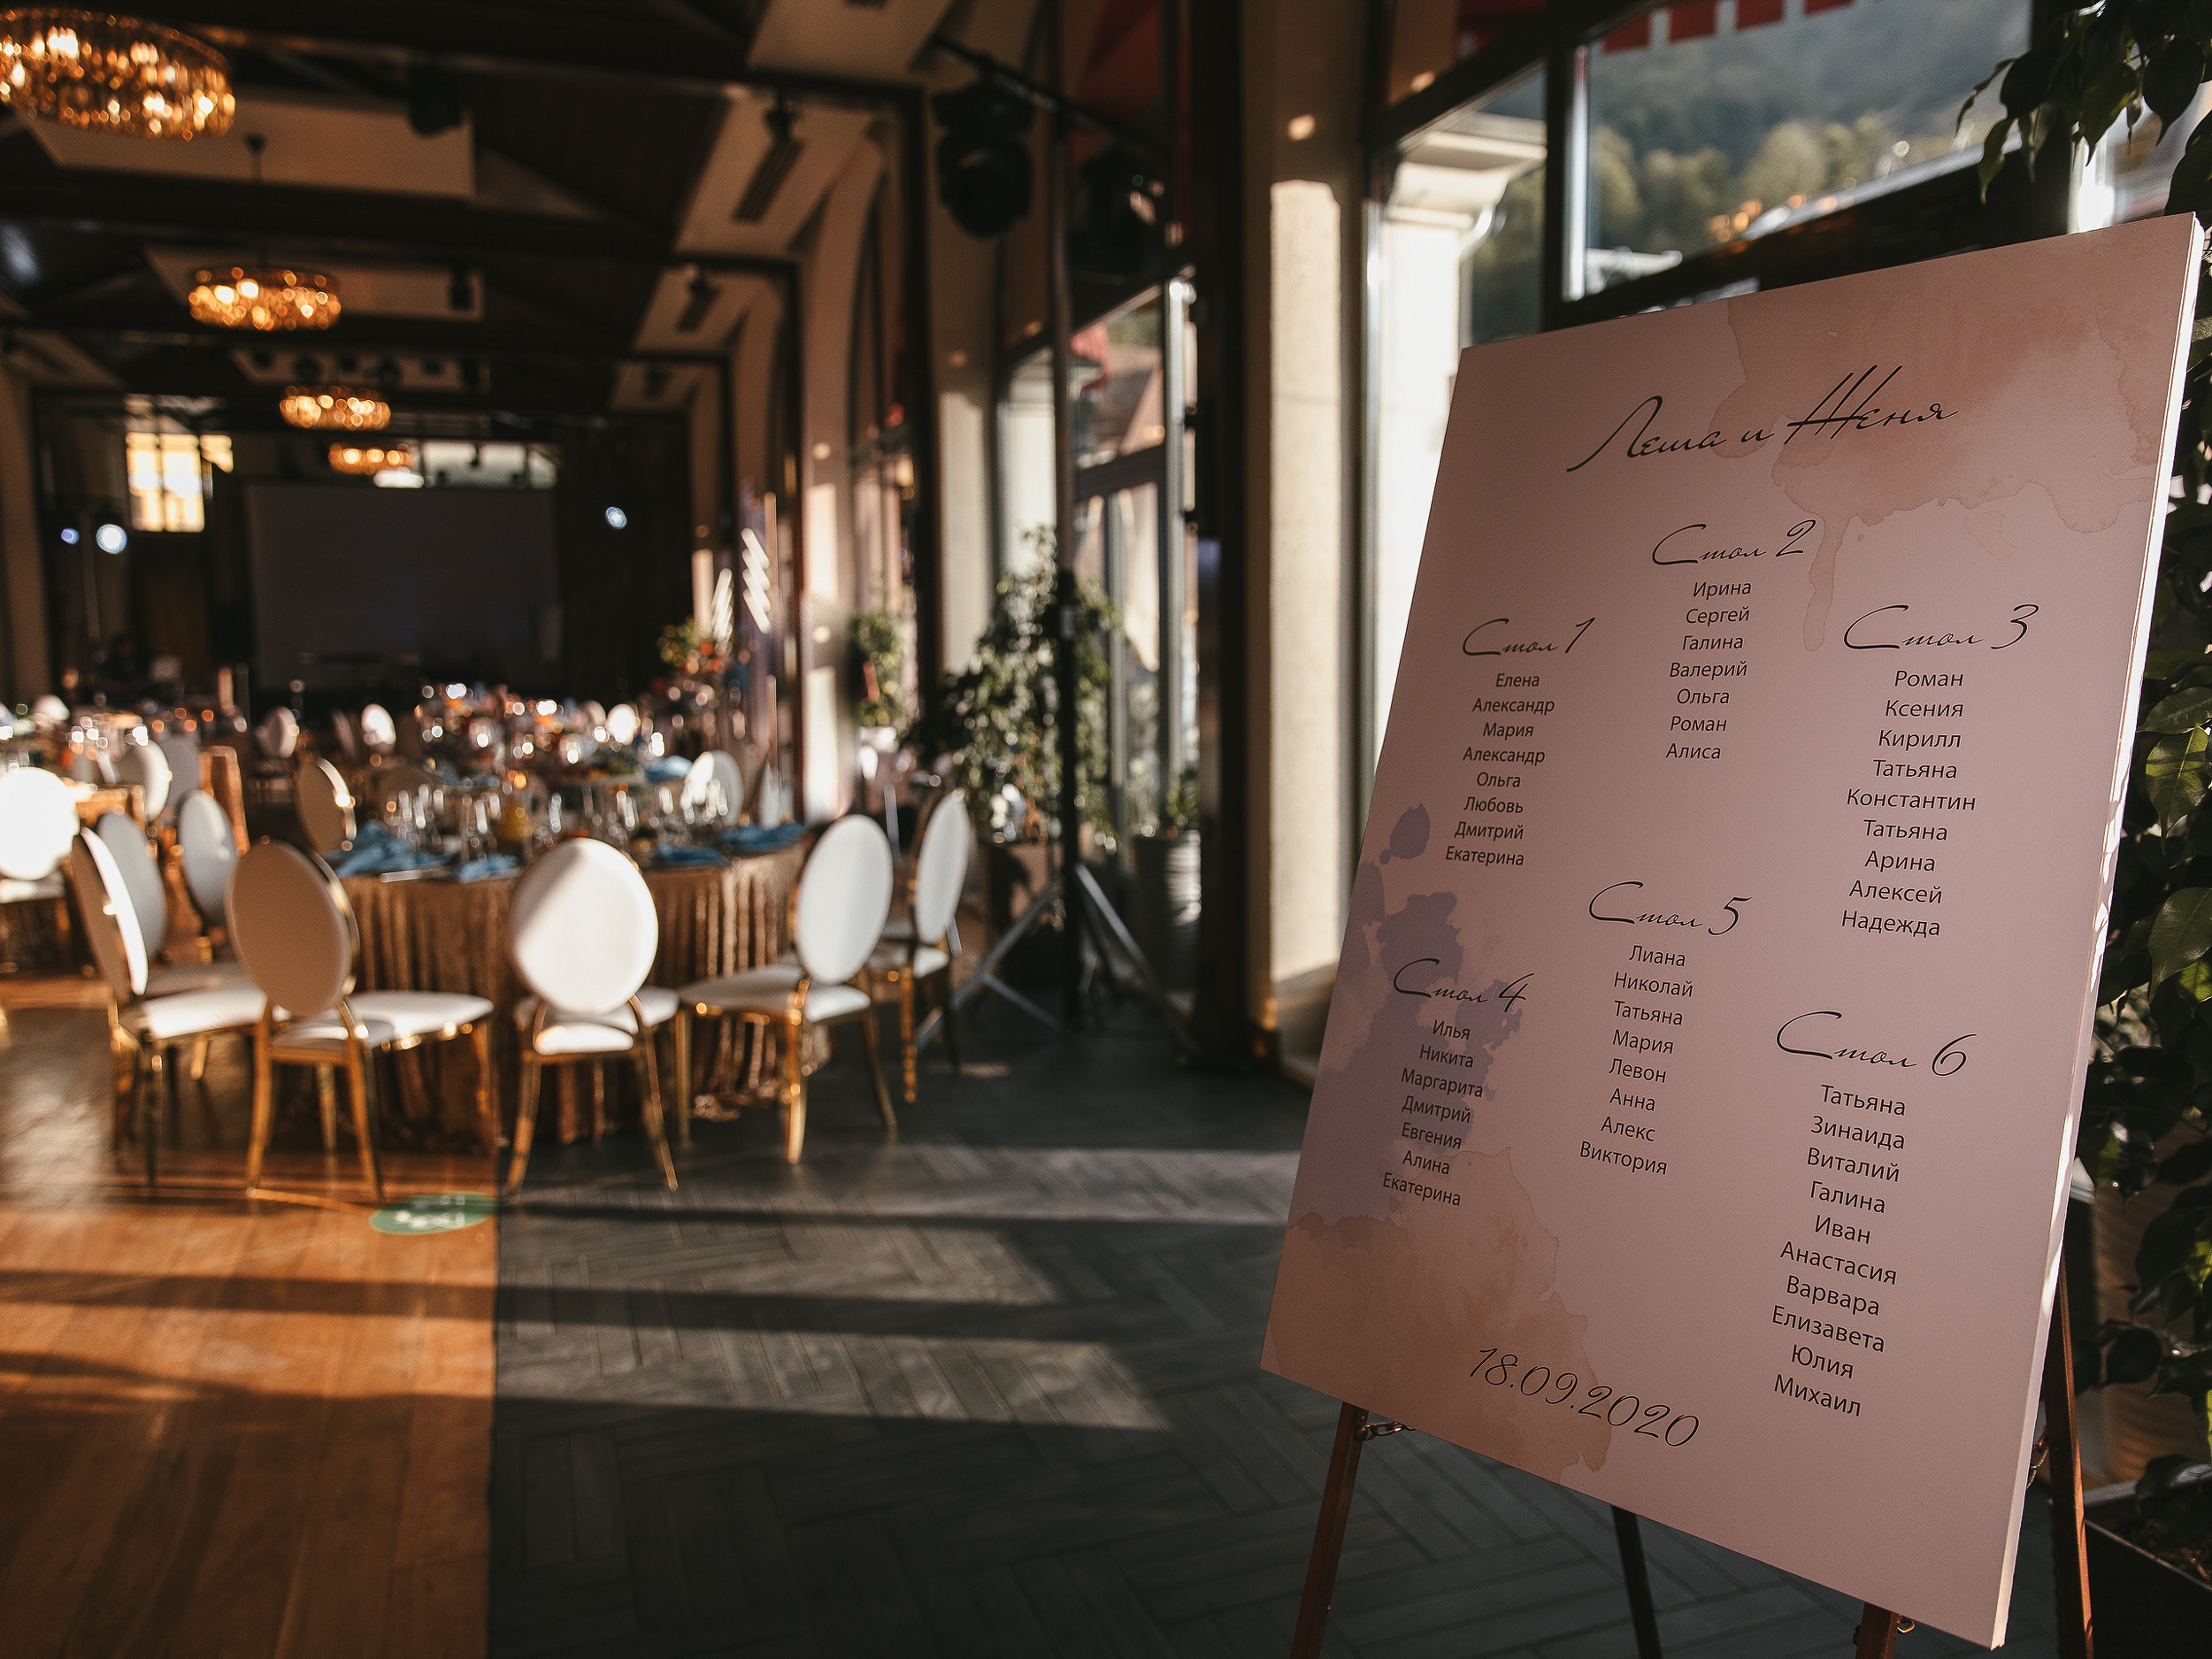 Леша и Женя
Стол 1
Елена
Александр
Мария
Александр
Ольга
Любовь
Дмитрий
Екатерина
Стол 2
Ирина
Сергей
Галина
Валерий
Ольга
Роман
Алиса
Стол 3
Роман
Ксения
Кирилл
Татьяна
Константин
Татьяна
Арина
Алексей
Надежда
Стол 4
Илья
Никита
Маргарита
Дмитрий
Евгения
Алина
Екатерина
Стол 5
Лиана
Николай
Татьяна
Мария
Левон
Анна
Алекс
Виктория
Стол 6
Татьяна
Зинаида
Виталий
Галина
Иван
Анастасия
Варвара
Елизавета
Юлия
Михаил
18.09.2020